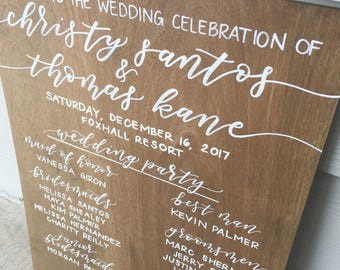 TO THE WEDDING CELEBRATION OF
christy santos
&
thomas kane
SATURDAY, DECEMBER 16, 2017
FOXHALL RESORT
wedding party
maid of honor
VANESSA GIRON
bridesmaids
MELISSA SANTOS
MAYA SHEALEY
KIM PALMER
MELISSA HERNANDEZ
CHARITY REILLY
junior
bridesmaid
MORGAN
best man
KEVIN PALMER
groomsmen
MARC
JERRY
JUSTIN